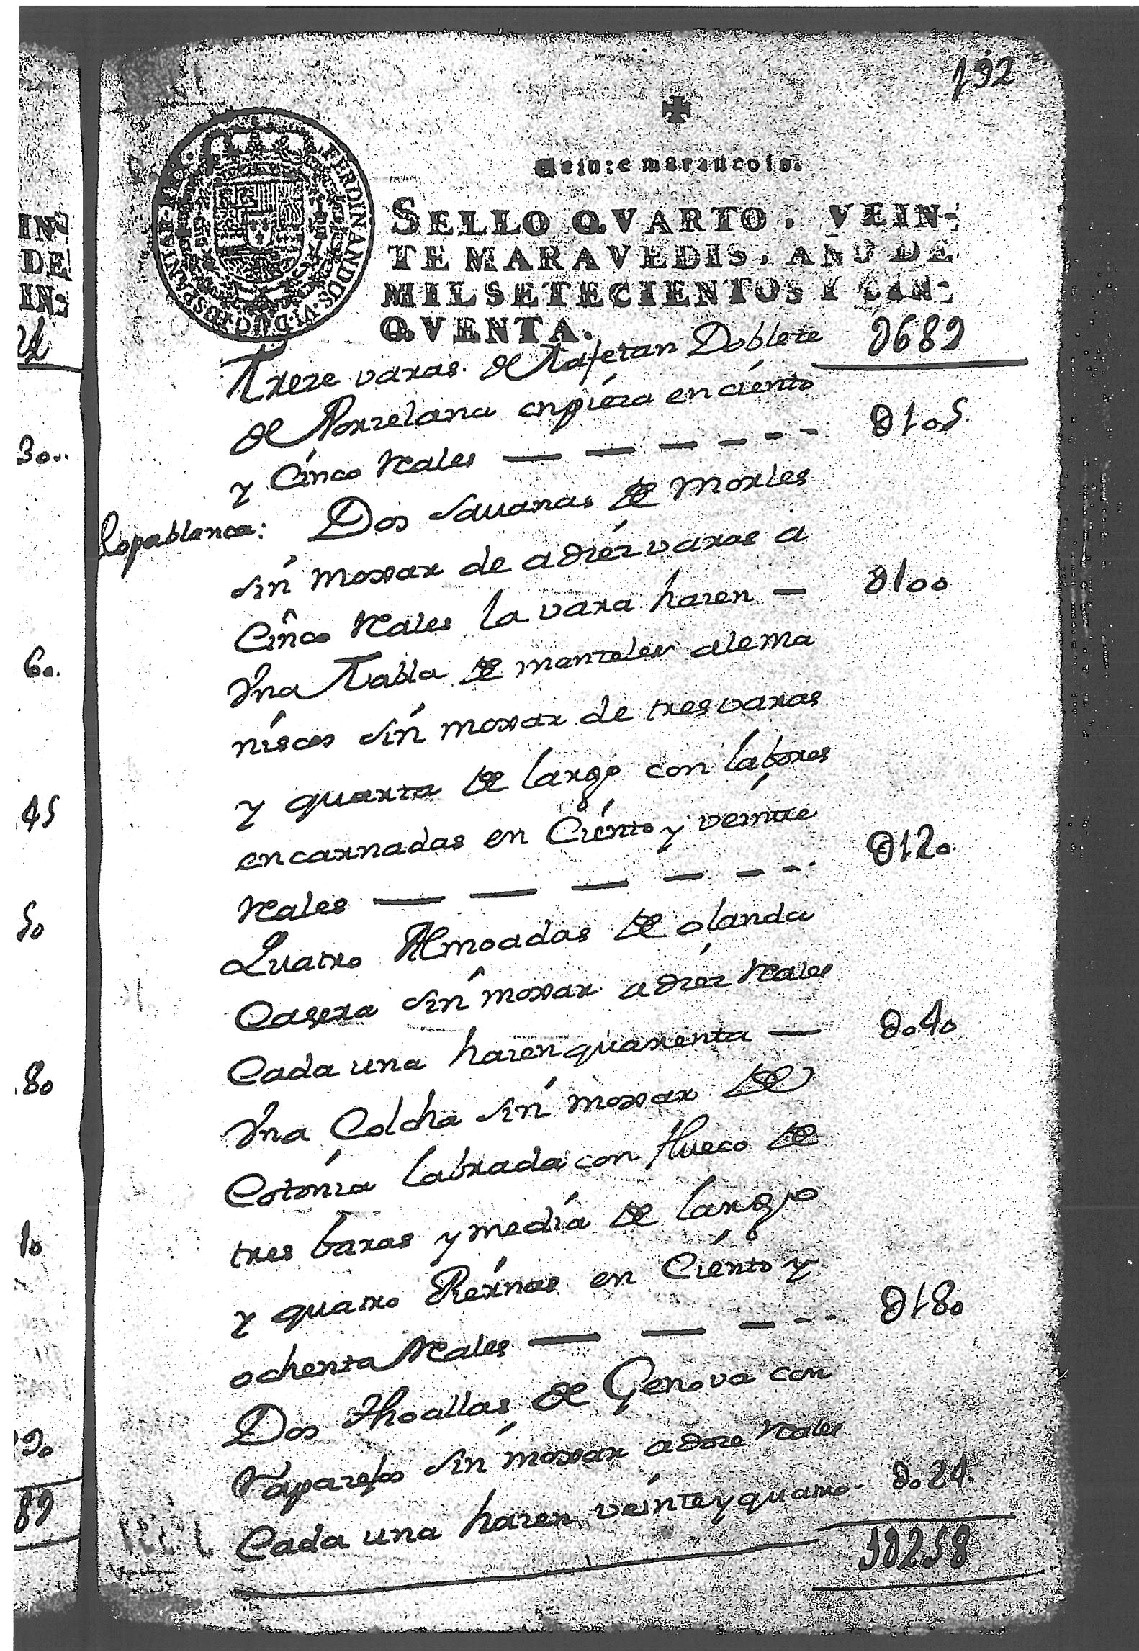 192
Veinte marauedis.
SELLO QVARTO, VEIN-
TE MARAVEDIS, AÑO DE
MILSETECIENTOS Y CIN-
QVENTA.
0689
Treze varas de Tafetan Doblete
de Porzelana enpieza en ciento
y Cinco Reales — — — — - - - 0105
Ropablanca: Dos Sauanas de Morles
sin moxar de adiez varas a
Cinco Reales la vara hazen — 0100
Vna Tabla de manteles alema
niscos sin moxar de tres varas
y quarta de largo con labores
encarnadas en Ciento y veinte
Reales — — — — - - - 0120
Quatro Almoadas de olanda
Casera sin moxar adiez Reales
Cada una hazen quarenta — 0.040
Vna Colcha sin moxar de
Cotonia Labrada con flueco de
tres baras y media de largo
y quatro Piernas en Ciento y
ochenta Reales — — — - - - 0180
Dos thoallas de Genova con
sin moxar adoze Reales
Cada una hazen veinte y quatro - 0.024
10258
IN-
DE
IN-
30..
60.
45
50
.80
10
90
89
FERDINANDUS·VI·D·G·HISPANIAR·REX